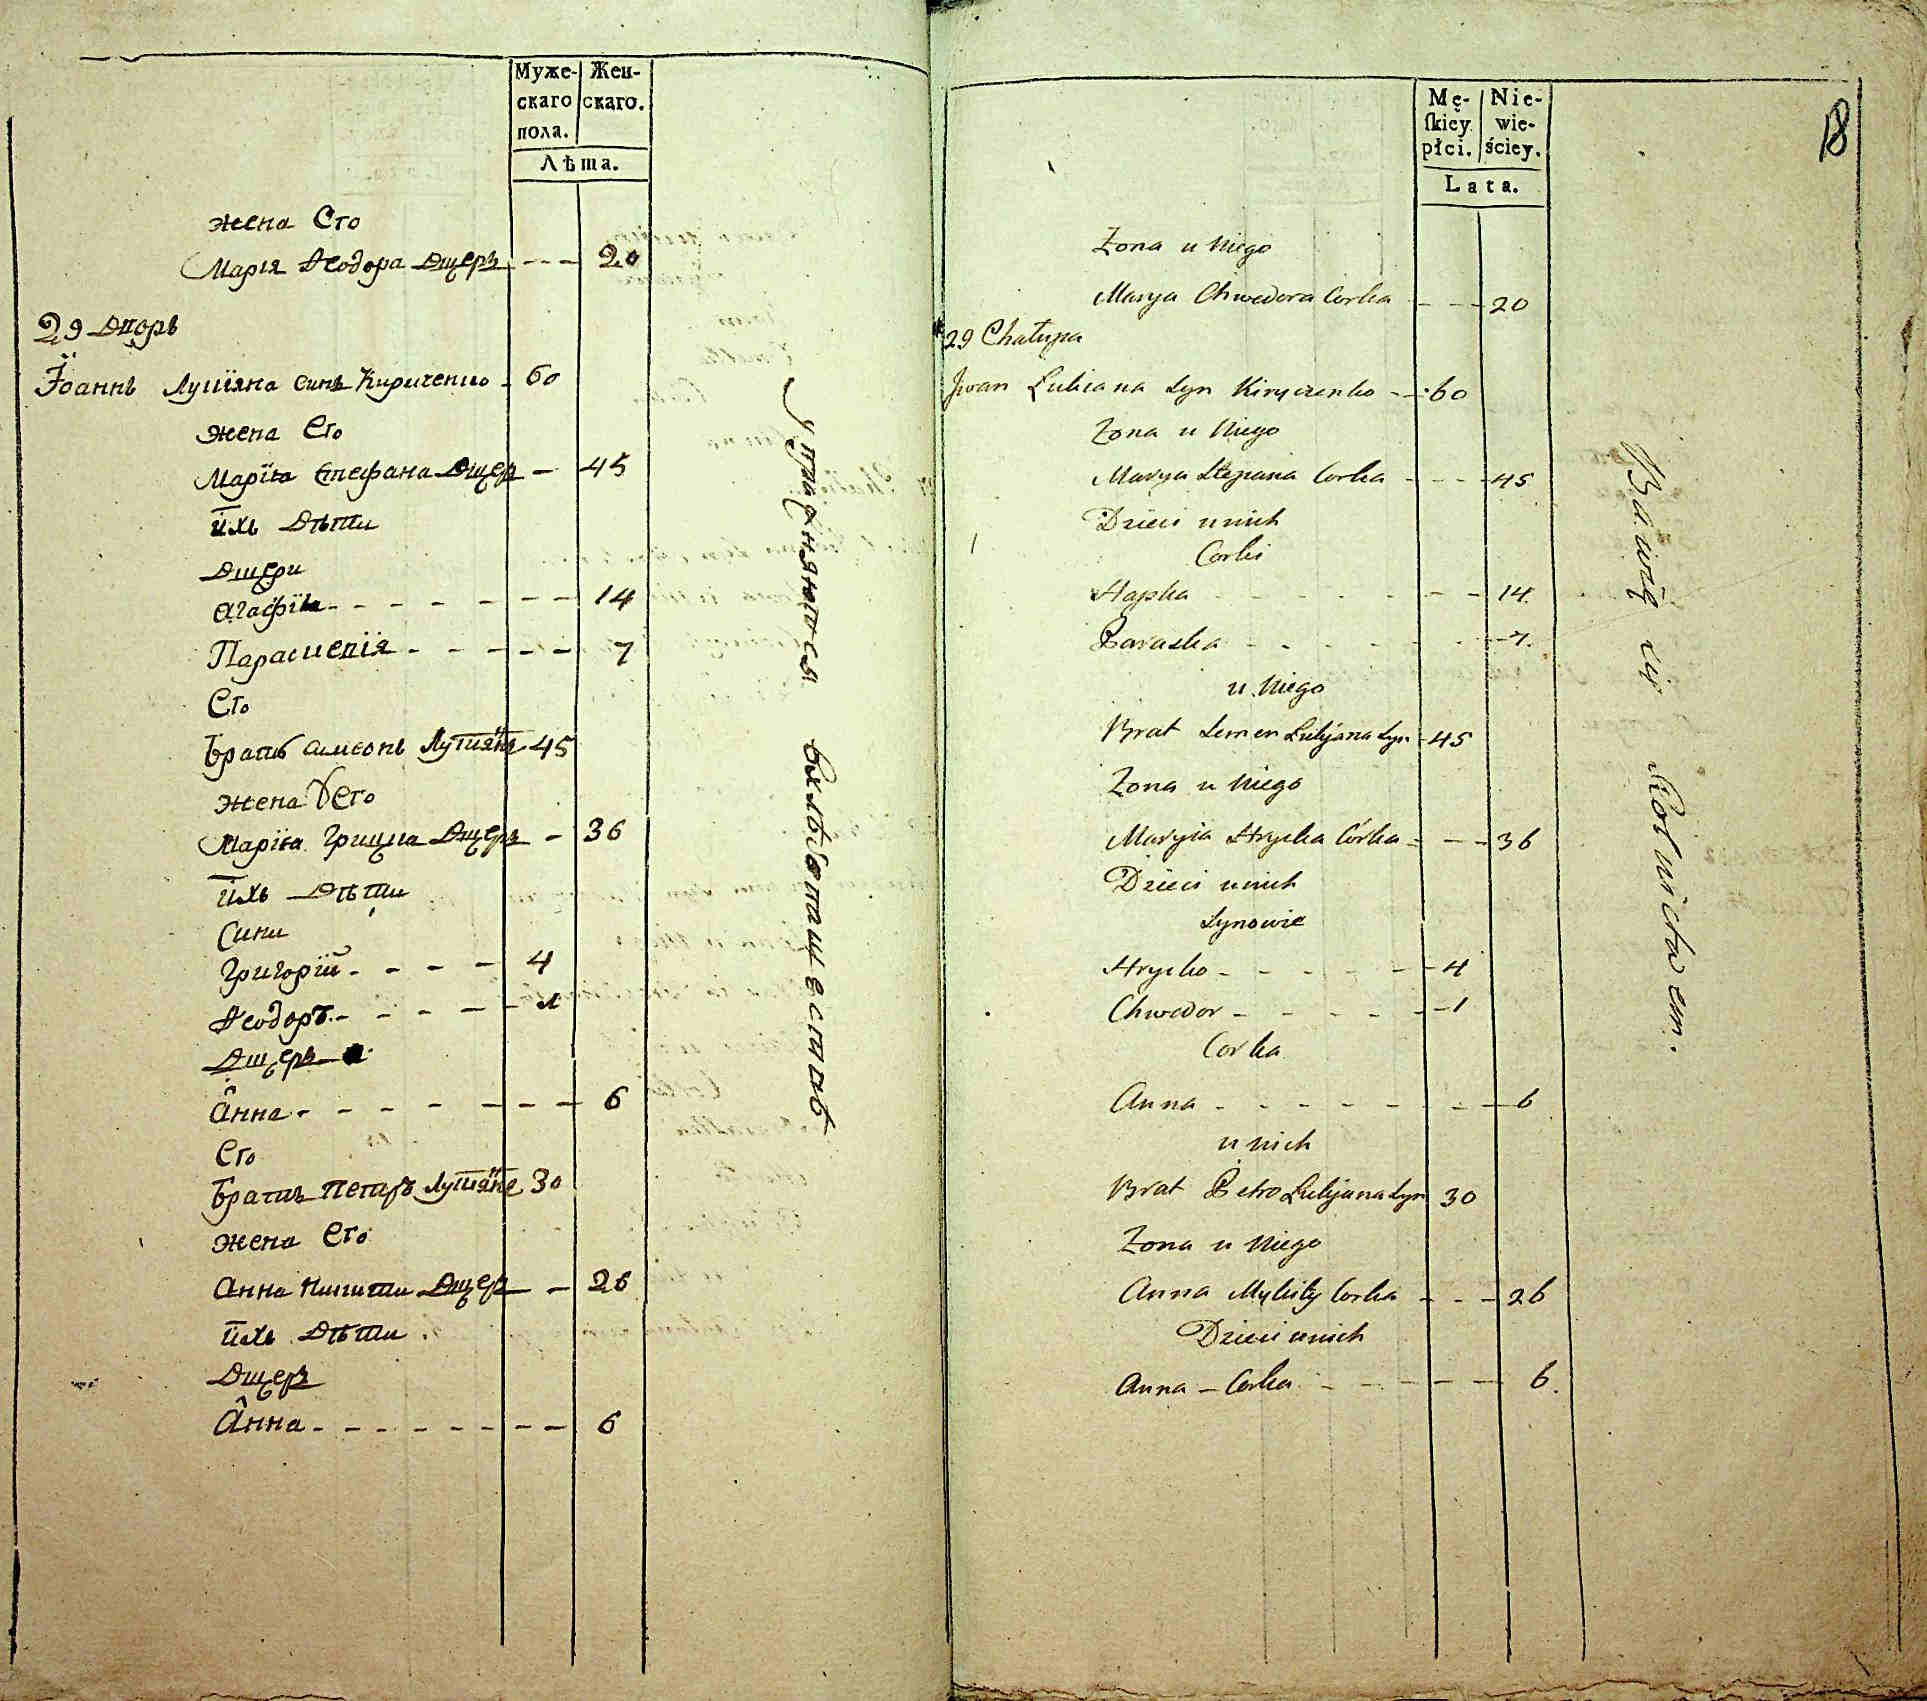 Муже-
скаго
пола.
Жен-
скаго.
Лѣта.
жена Єго
Марія Ѳеодора Дщерь --- 20
29 Дворъ
Їоаннъ Лукіяна синъ Кириченко - 60
жена Єго
Маріꙗ Стефана Дщер - 45
ихъ Дѣти
Дщери
Агафіꙗ - - - - - - - 14
Параскевія - - - - - - 7
Єго
Братъ Симеонъ Лукіяна 45
жена Єго
Маріꙗ Грицка Дщерь - 36
ихъ Дѣти
Сини
Григорій - - - - 4
Ѳеодоръ - - - - - 1
Дщерь
Анна - - - - - - - 6
Єго
Братъ Петръ Лукіяна 30
жена Єго
Анна Микити Дщер - - 26
ихъ Дѣти.
Дщерь
Анна - - - - - - - - 6
Упражняются въ хлѣбопашествѣ
Mę-
ſkiey
płci.
Nie-
wie-
ściey.
Lata.
18
Zona u Niego
Marya Chwedora Corka - - - 20
29 Chałupa
Jwan Lukiana Syn Kiryczenko - - 60
Zona u Niego
Marya Stepana Corka - - - - 45
Dzieci u nich
Corki
Hapka - - - - - - - 14.
Paraska - - - - - - - 7.
u Niego
Brat Semen Lukjana Syn - 45
Zona u Niego
Maryia Hrycka Córka - - - 36
Dzieci u nich
Synowie
Hrycko - - - - - - 4
Chwedor - - - - - - 1
Corka
Anna - - - - - - - - 6
u nich
Brat Petro Lukjana Syn 30
Zona u Niego
Anna Mykity Corka - - - 26
Dzieci u nich
Anna - Corka - - - - - 6.
Bawią się Rolnictwem.